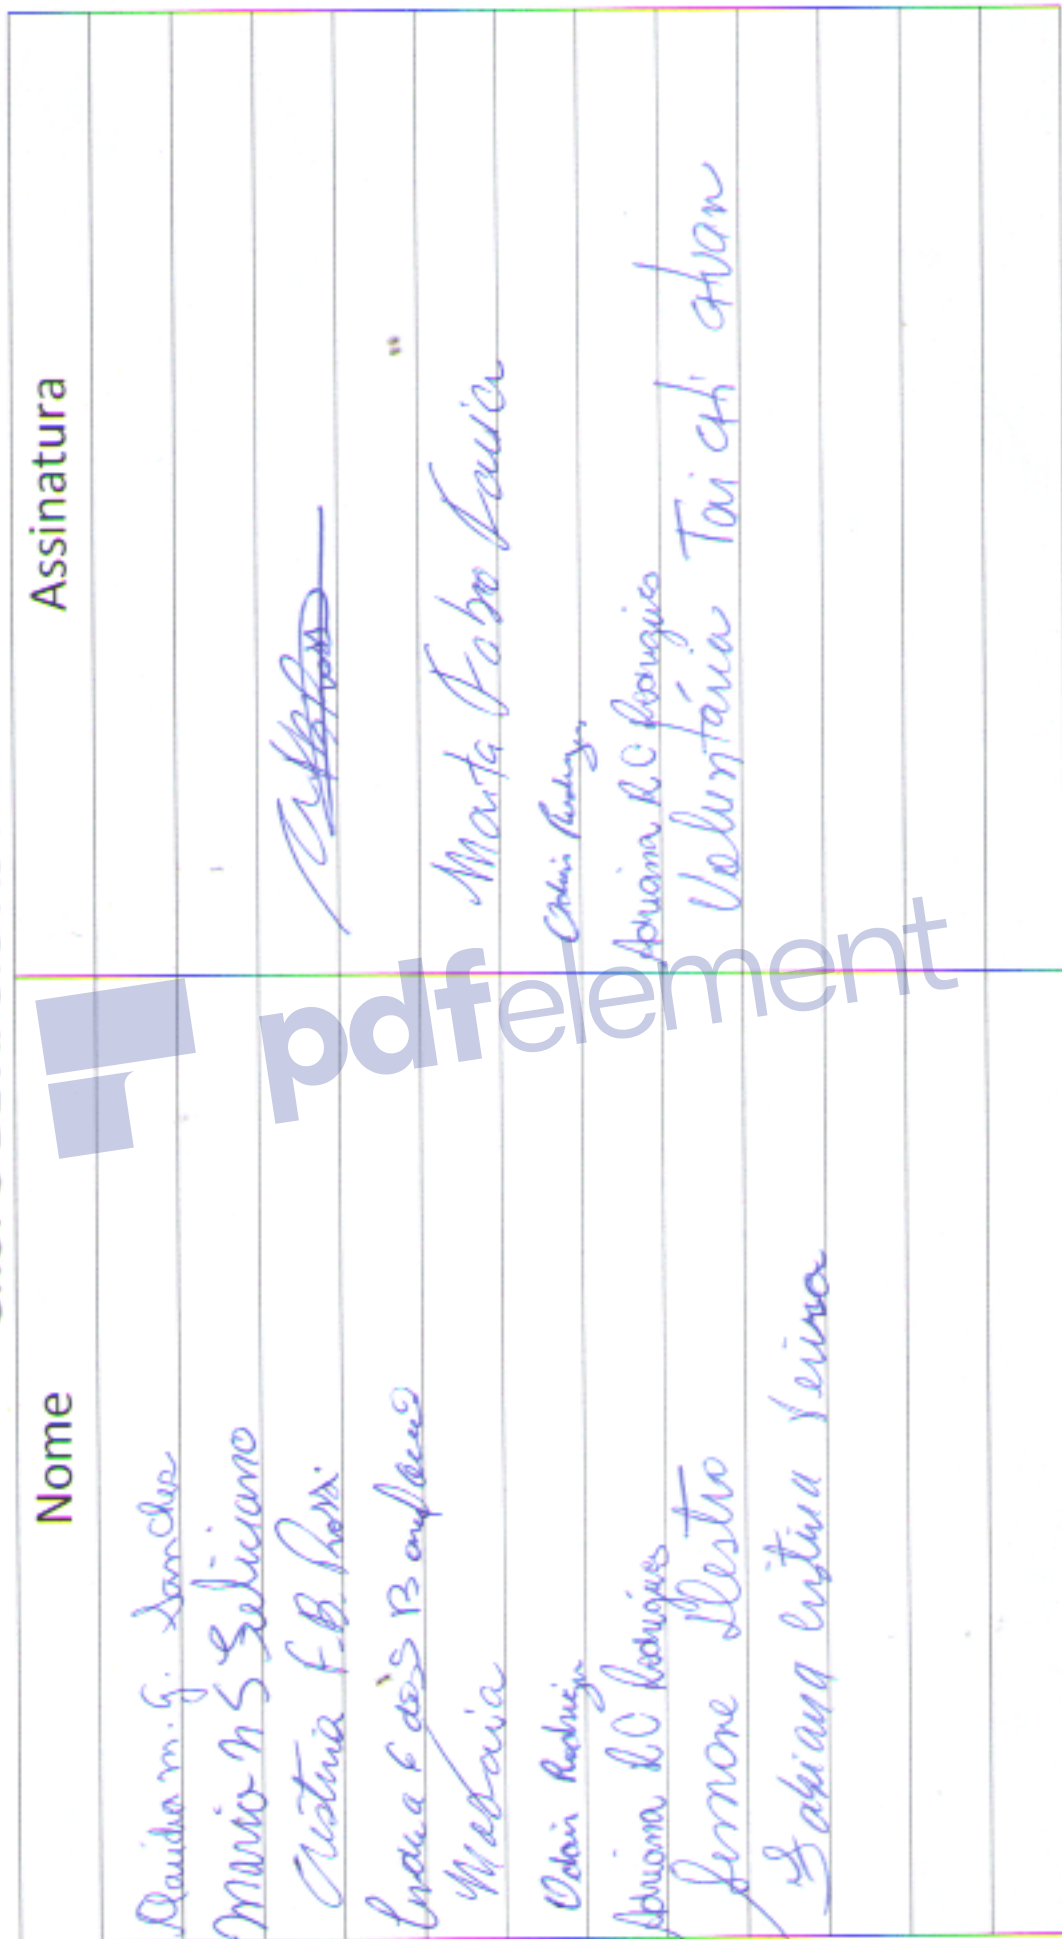 Nome Assinatura
Claudia m. G. Sanches
Mario n S Feliciano
Cristina F.B. Rossi.
dos
Maria Marta Fabro Faria
Odair Rodrigues Odair Rodrigues
Adriana R C Rodrigues Adriana R C Rodrigues
Simone Silestro Voluntária Tai chi chuan
Fabiana Cristina Vieira
pdfelement